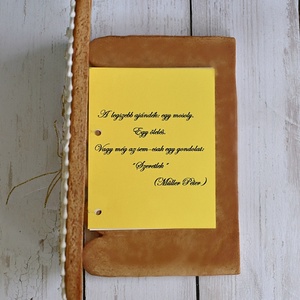 A legszebb ajándék: egy mosoly.
Egy ölelés.
Vagy még az sem-csak egy gondolat:
"Szeretlek"
(Müller Péter)